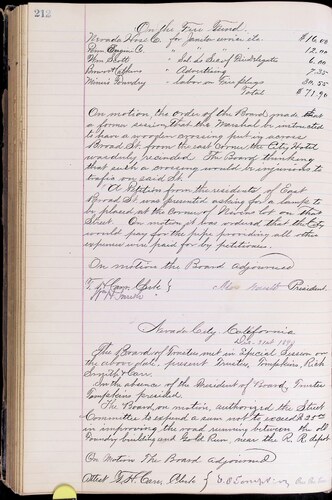 212
On the Fire Fund.
Nevada Hose Co. for Janitor water etc. $16.00
Penn Engin Co. " " " " 12.00
Wm Scott " Sal. as Sec of Fire Delegates 6.00
Brown & Calkins " Advertising 7.35
Miners Foundry " labor on Fire plugs 30.55
Total $71.90
On motion, the order of the Board, made at
a former session, that the Marshal be instructed
to have a wooden crossing put in across
Broad St. from the east Corner the City Hotel
was duly rescinded. The Board thinking
that such a crossing would be injurious to
trafic on said St.
A Petition from the residents of East
Broad St. was presented asking for a lamp to
be placed at the Corner of Nivens lot on that
Street. On motion it was ordered that the City
would pay for the pipe providing all other
expense were paid for by petitioners.
On motion the Board adjourned
T. H. Carr, Clerk
President.
Nevada City, California
Dec. 21st
The Board of Trustees met in Special Session on
the above date, present Trustees, Tompkins, Rich
Smith & Carr.
In the absence of the President of Board, Trustee
Tompkins presided.
The Board, on motion, authorized the Street
Committee to expend a sum not to exceed
in improving the road running between the old
Foundry building and Gold Run, near the R. R. depot
On Motion The Board adjourned
Attest T. H. Carr, Clerk